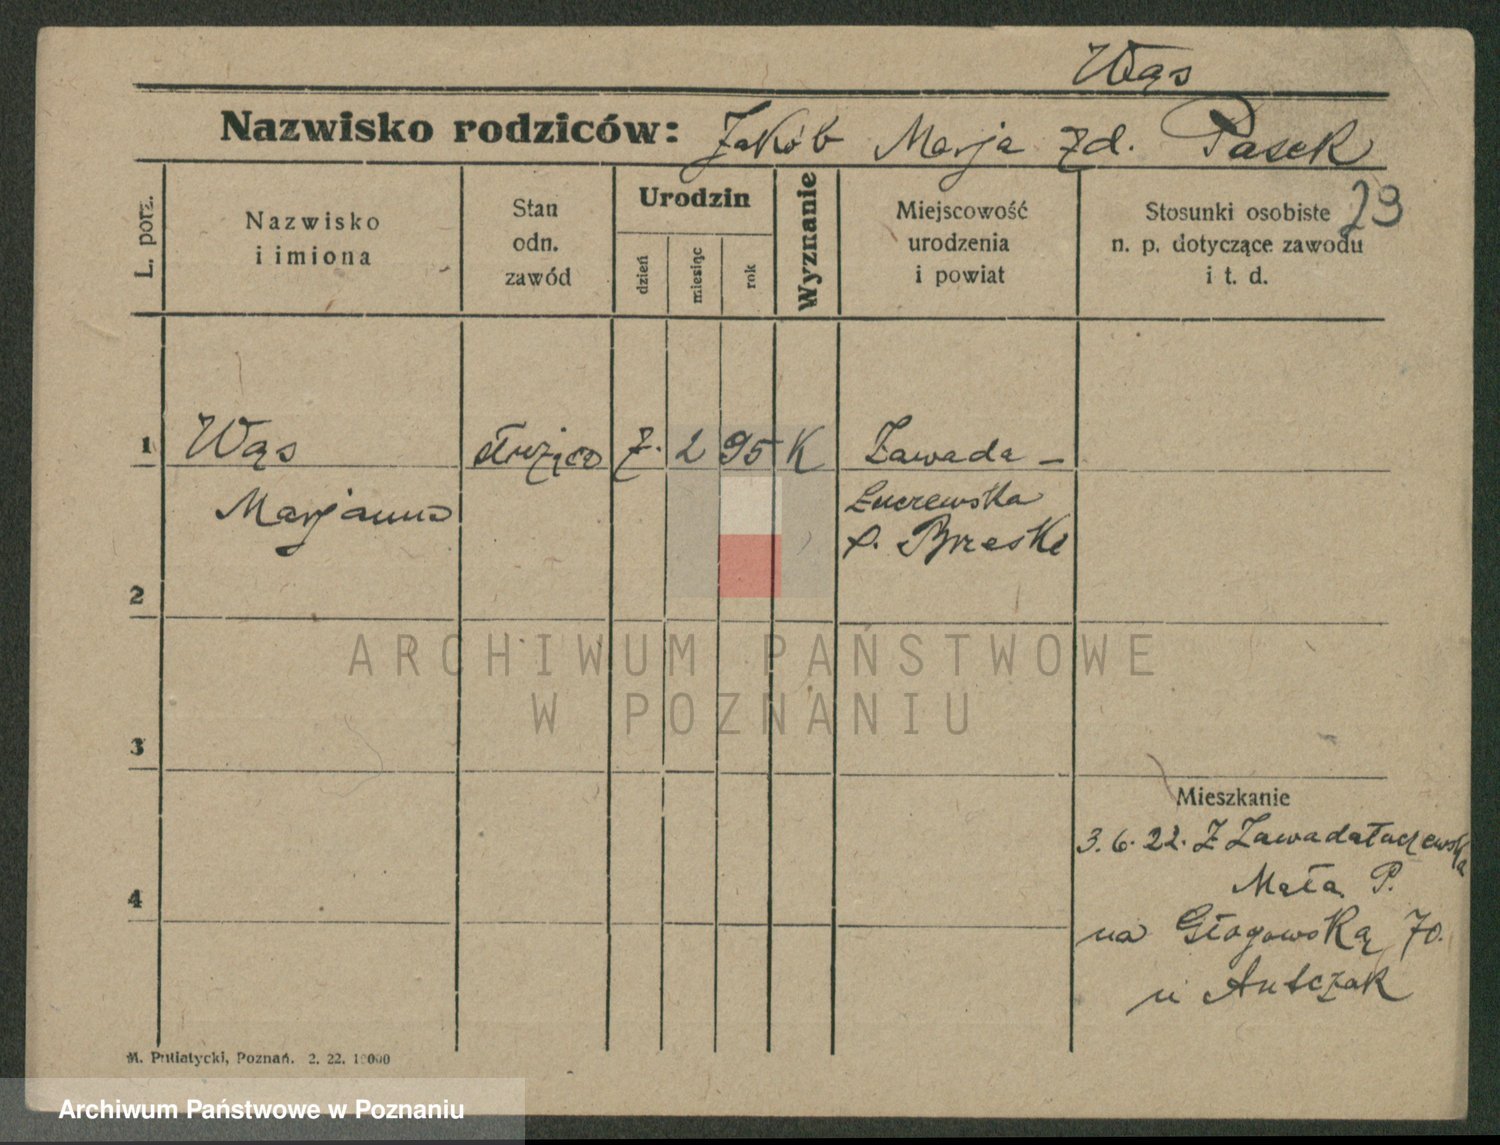 Wąs
Nazwisko rodziców: Jakób Marja zd. Pasek
23
L. porz.
Nazwisko
i imiona
Stan
odn.
zawód
Urodzin
dzień
miesiąc
rok
Wyznanie
Miejscowość
urodzenia
i powiat
Stosunki osobiste
n. p. dotyczące zawodu
i t. d.
1 Wąs służąca 7. 2 95 K Zawada –
Marjanna Łuczewska
p. Brzesko
2
3
4
Mieszkanie
3. 6. 22. Z Zawadałuczewska
Mała P.
na Głogowską 70.
u Antczak
M. Putiatycki, Poznań. 2. 22. 10000
ARCHIWUM PAŃSTWOWE
W POZNANIU
Archiwum Państwowe w Poznaniu